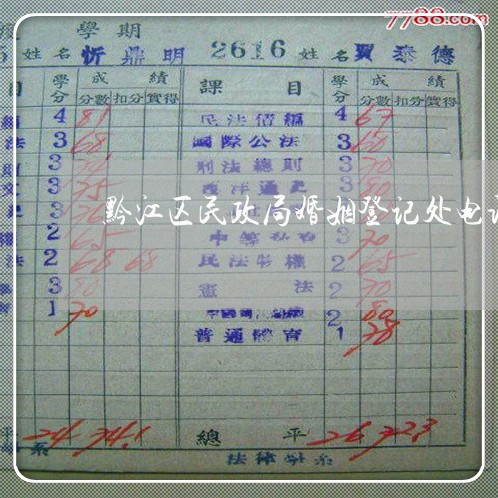 7788.com
學期
姓名 忻鼎明 2616 姓名 賈泰德
目 學分 成績 課目 學分 成績
分數 扣分 實得 分數 扣分 實得
4 81 民法債編 4 67
法 3 68 國際公法 3 60
3 刑法總則 3 70
3 75 西洋通史 3 80
3
2 65 3 70
法 2 68 68 民法物權 2 65
3 80 憲法 2 70
1 70 2 80
普通體育 1 78
黔江区民政局婚姻登记处电
24 74.1 總平 26 72.3
系 法律學系